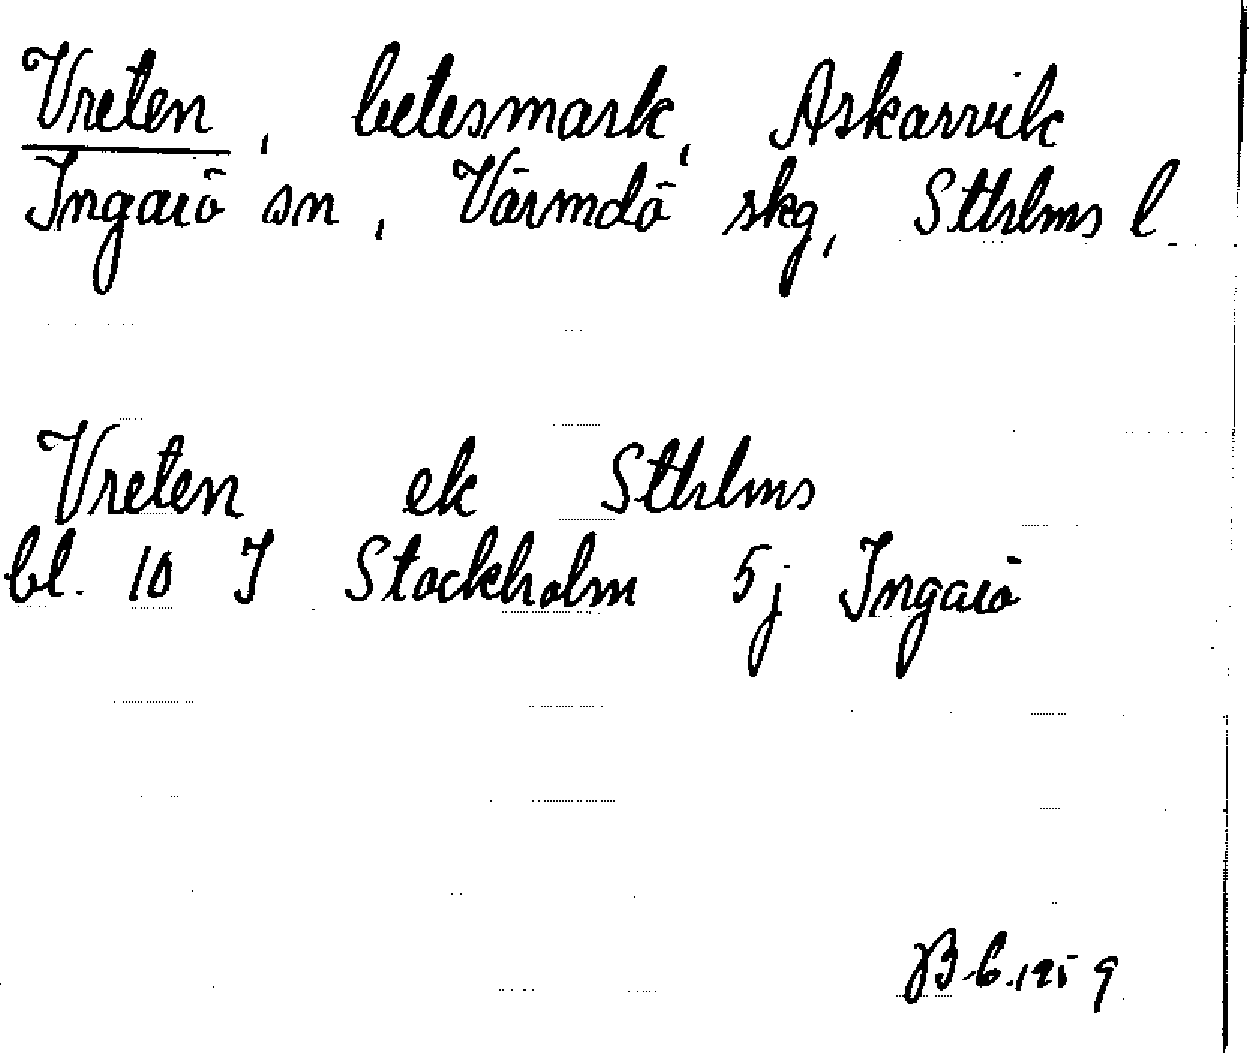 Vreten, betesmark, Askarvik
Ingarö sn, Värmdö skg, Sthlms l
Vreten ek Sthlms
bl. 10 I Stockholm 5j Ingarö
1959